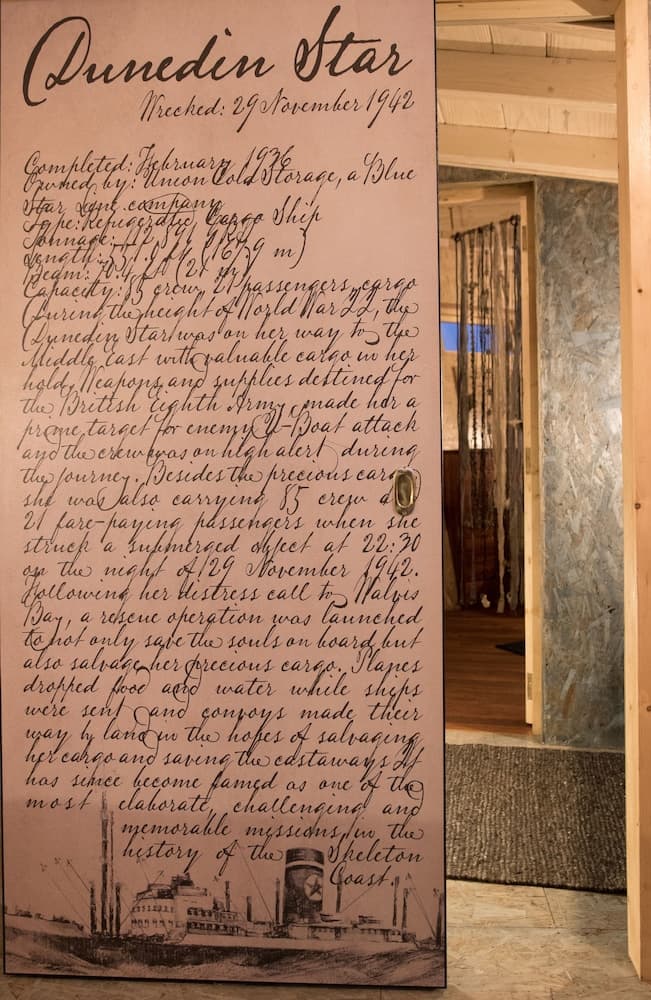 Dunedin Star
Wrecked: 29 November 1942
Completed: February 1936
Owned by: Union Cold Storage, a Blue
Star Line company
Type: Refrigerated Cargo Ship
Tonnage:
Length: 
Beam: 70.4 ft (21 m)
Capacity: 85 crew, 21 passengers, cargo
During the height of World War 22, the
Dunedin Star was on her way to the
Middle East with valuable cargo in her
hold. Weapons and supplies destined for
the British Eighth Army, made her a
prime target for enemy U-Boat attack
and the crew was on high alert during
the journey. Besides the precious cargo
she was also carrying 85 crew
21 fare-paying passengers when she
struck a submerged object at 22:30
on the night of 29 November 1942.
Following her distress call to Walvis
Bay, a rescue operation was launched
to not only save the souls on board but
also salvage her precious cargo. Planes
dropped food and water while ships
were sent and convoys made their
way by land in the hopes of salvaging
her cargo and saving the castaways. It
has since become famed as one of the
most elaborate, challenging and
memorable missions in the
history of the Skeleton
Coast.